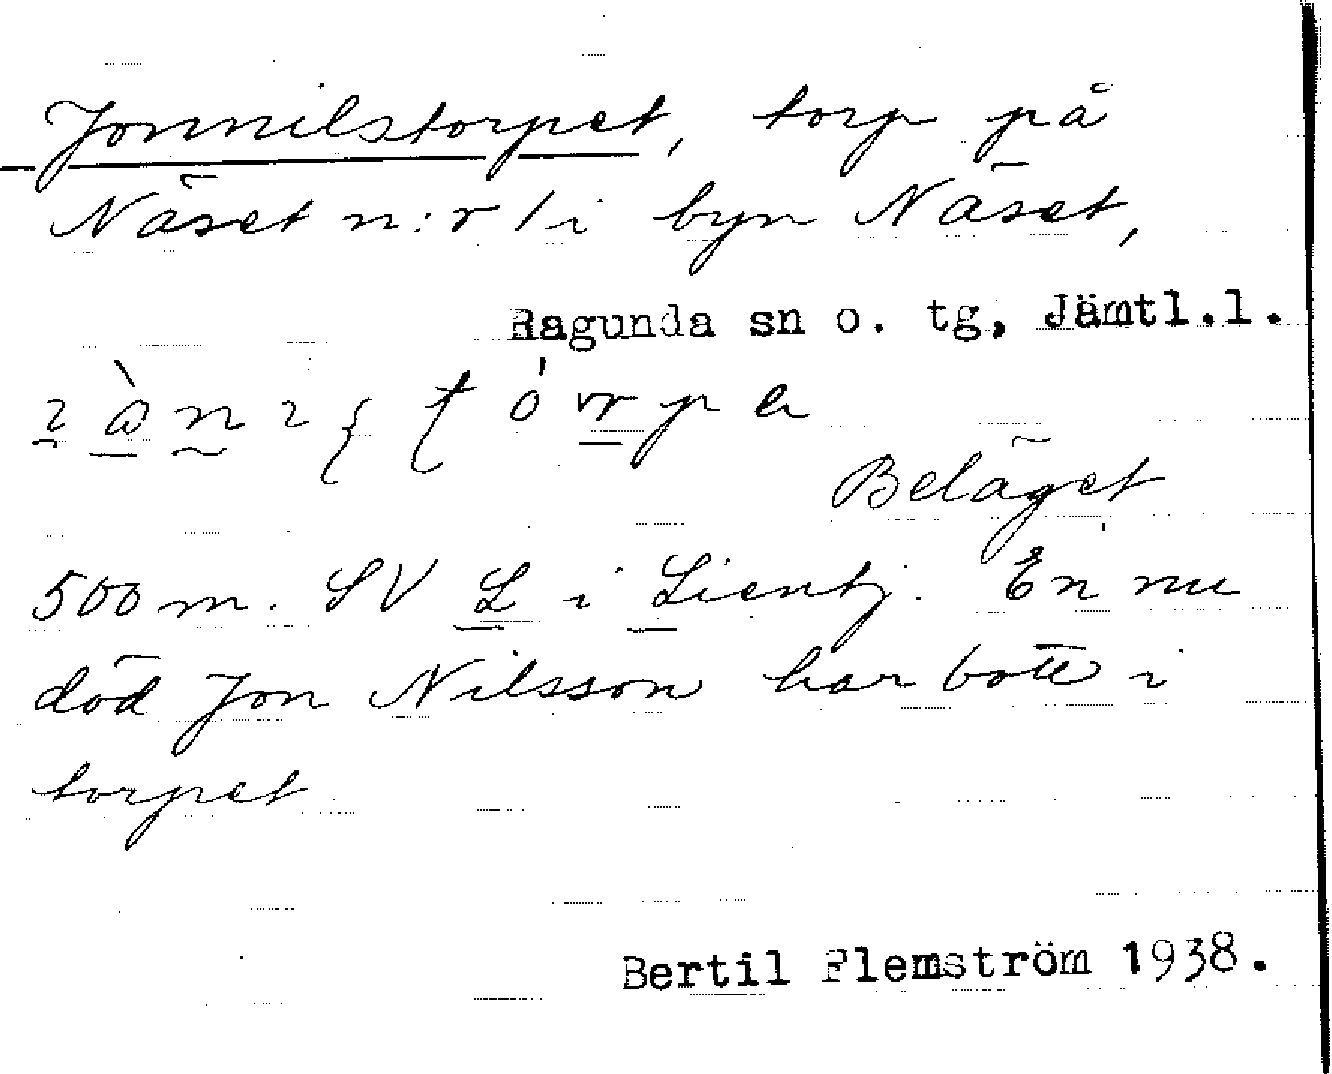 Jonnilstorpet, torp på
Näset n:r 1 i byn Näset,
Ragunda sn o. tg, Jämtl.l.
Beläget
500 m. SV L i Lientj. En nu
död Jon Nilsson har bott i
torpet
Bertil Flemström 1938.